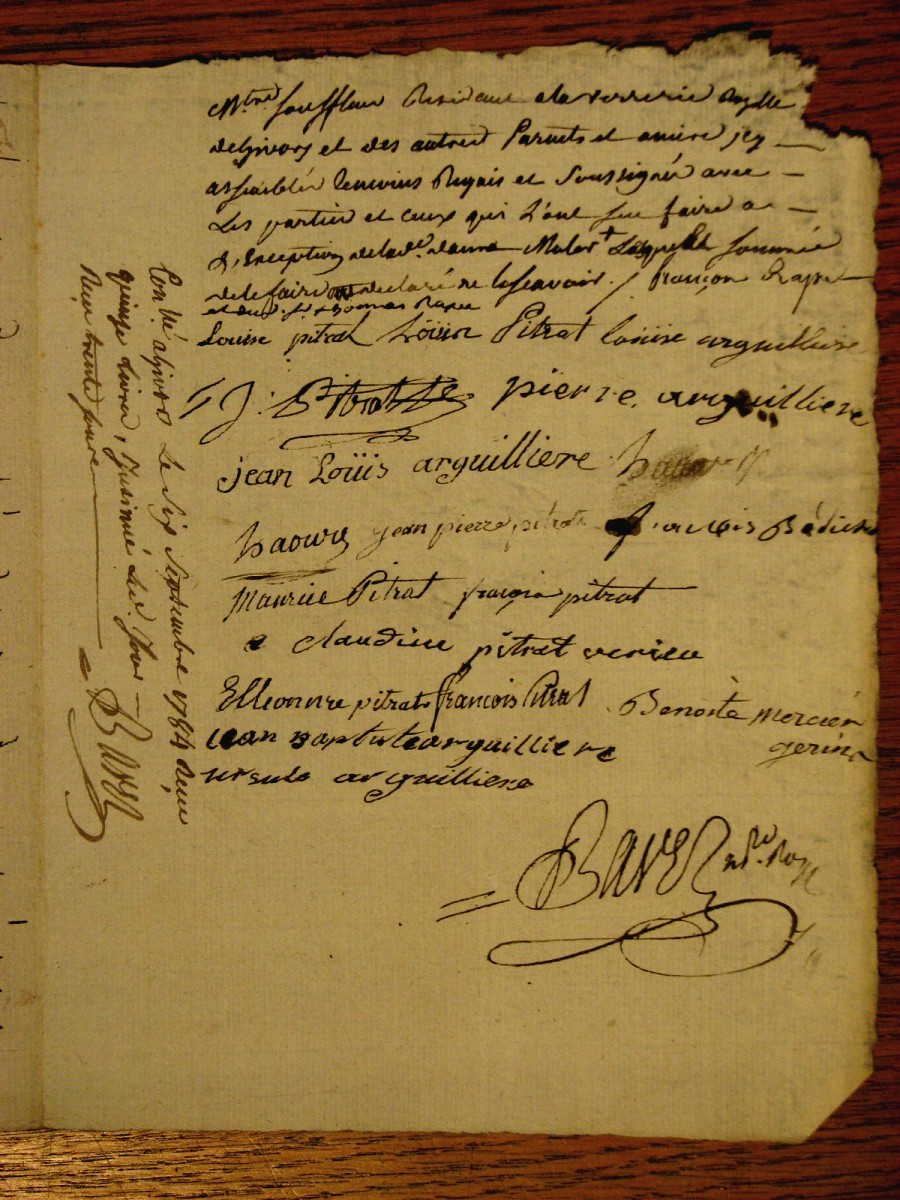 M.tre souffleur Residant a la verrerie Royalle
de Givors et des autres Parents et amis icy
assemblés temoins Requis et Soussignés avec
Les parties et ceux qui L'ont sçu faire a
L'exception de lad.e Malar + Lesquels sommés
de le faire ont declaré ne le scavoir. / françon Rapet
Louise pitrat Loüise Pitrat louise arguilliere
J: Pitrat pierre arguilliere
jean Loüis arguilliere
haoury jean pierre pitrat francois
Maurice Pitrat françois pitrat
claudine pitrat verieu
Elleonore pitrat francois Pitrat Benoite mercier
jean Baptiste arguilliere gerin
ursule arguilliere
Bavet n.re Roy.
Con.lé a givors Le Six Septembre 1784 Reçu
quinze livres, jnsinué Led. jour
Reçu trente
Bavet